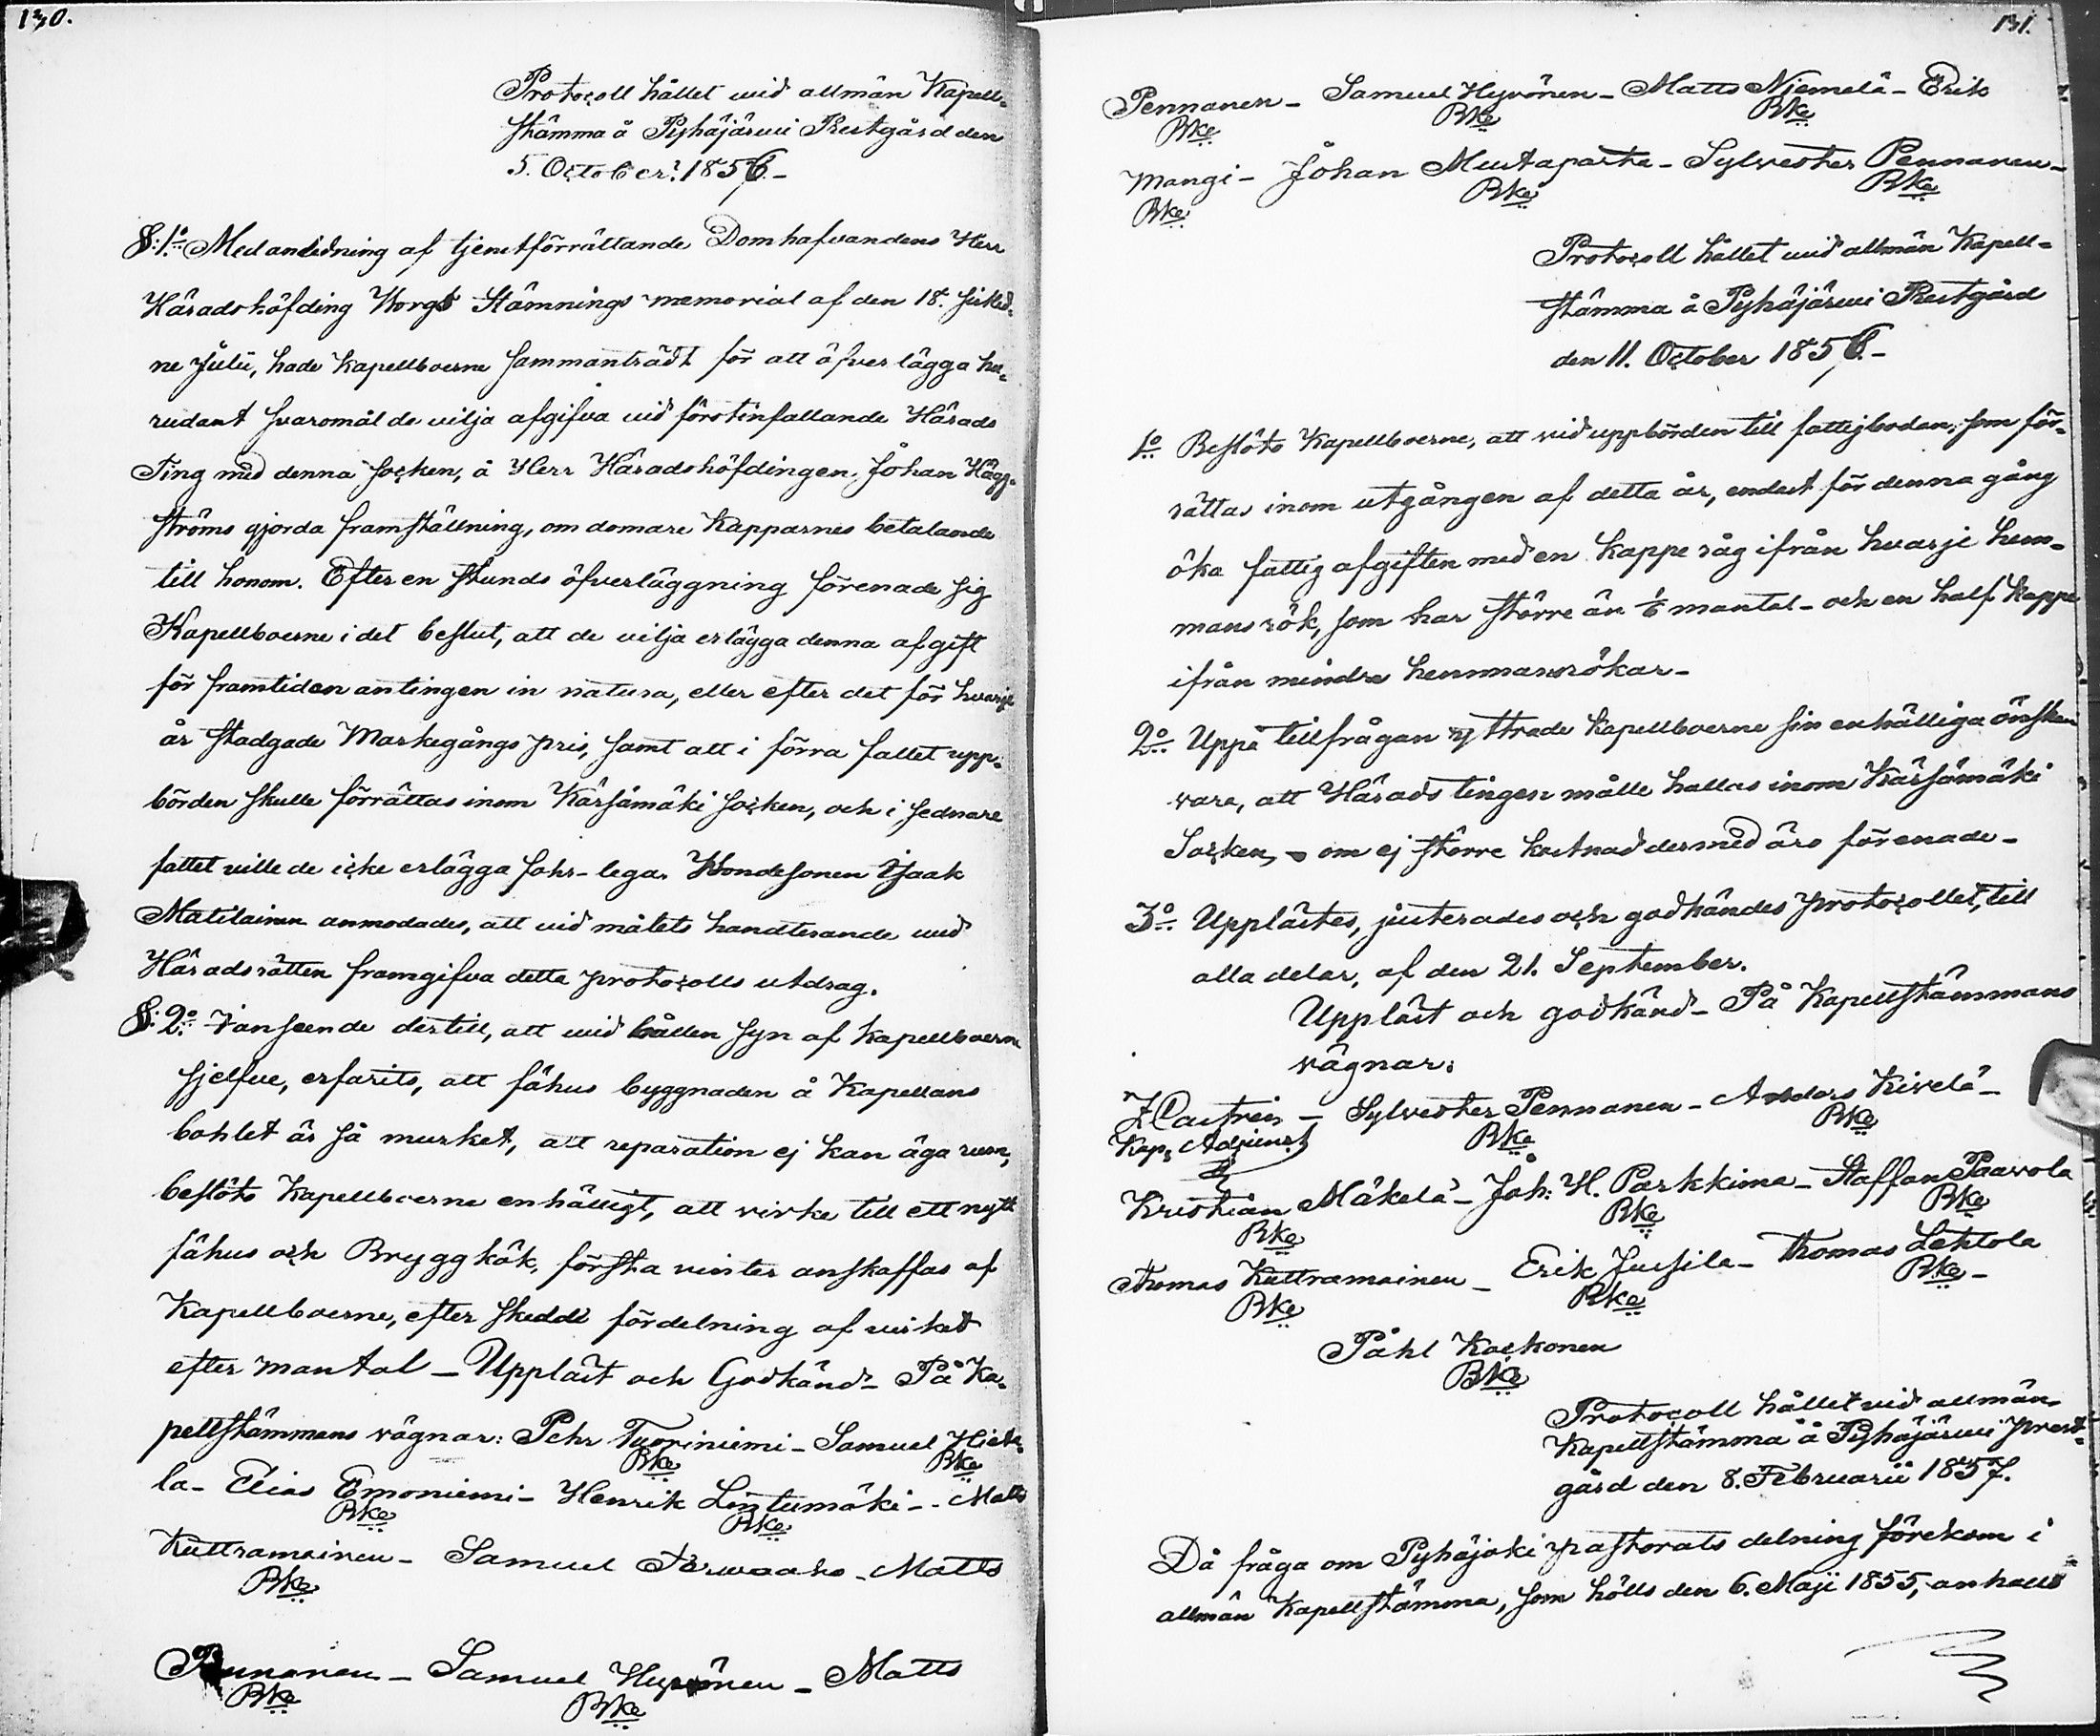 130.
Protocoll hållet wid allmän Kapell-
stämma å Pyhäjärwi Prestgård den
5. October 1856.-
§:1:o Med anledning af tjenstförrättande Domhafvandens Herr
Häradshöfding Worgs Stämnings memorial af den 18. sistled-
ne Julii, hade Kapellboerne sammanträdt för att öfverlägga hu-
rudant svaromål de vilja afgifva vid förstinfallande Härads
Ting med denna Socken, å Herr Häradshöfdingen Johan Hägg-
ströms gjorda framställning, om domare Kapparnes betalande
till honom. Efter en stunds öfverläggning förenade sig
Kapellboerne i det beslut, att de vilja erlägga denna afgift
för framtiden antingen in natura, eller efter det för hvarje
år stadgade Markegångs pris, samt att i förra fallet upp-
börden skulle förrättas inom Kärsämäki Socken, och i sednare
fallet ville de icke erlägga fohr-lega. Bondesonen Isaak
Matilainen anmodades, att vid målets handterande wid
Häradsrätten framgifva detta protocolls utdrag.
§:2:o I anseende dertill, att wid hållen syn af Kapellboerne
sjelfve, erfarits, att fähus byggnaden å Kapellans
bohlet är så murket, att reparation ej kan äga rum,
beslöto Kapellboerne enhälligt, att virke till ett nytt
fähus och Bryggkök, första vinter anskaffas af
Kapellboerne, efter skedde fördelning af virket
efter mantal - Uppläst och Godkänd - På Ka-
pellstämmans vägnar: Pehr Tyoriniemi - Samuel Hieta-
Bke Bke
la - Elias Emoniemi - Henrik Lintumäki - Matts
Bke Bke
Kuttramainen - Samuel Terwaaho - Matts
Bke
Pennanen - Samuel Hyvönen - Matts
Bke Bke
131.
Pennanen - Samuel Hyvönen - Matts Niemelä - Erik
Bke Bke Bke
Mangi - Johan Mustaparta - Sylvester Pennanen -
Bke Bke Bke
Protocoll hållet wid allmän Kapell-
stämma å Pyhäjärwi Prestgård
den 11. October 1856.-
1:o Beslöto Kapellboerne, att vid uppbörden till fattigboden, som för-
rättas inom utgången af detta år, endast för denna gång
öka fattig afgiften med en kappe råg ifrån hvarje hem-
mans rök, som har större än 1/6 mantal - och en half kappe
ifrån mindre hemmansrökar -
2:o Uppå tillfrågan yttrade Kapellboerne sin enhälliga önskan
vara, att Härads tingen måtte hållas inom Kärsämäki
Socken, - om ej större kostnad dermed äro förenade -
3:o Upplästes, justerades och godkändes protocollet, till
alla delar, af den 21. September.
Uppläst och godkänd - På Kapellstämmans
vägnar:
Z Castrén - Sylvester Pennanen - Anders Kivelä -
Kap. Adjunct Bke Bke
Kristian Mäkelä - Joh: H. Parkkima - Staffan Paavola
Bke Bke Bke
Thomas Kuttramainen - Erik Jussila - Thomas Lehtola
Bke Bke Bke -
Påhl Koskonen
Bke
Protocoll hållet vid allmän
Kapellstämma å Pyhäjärwi prest-
gård den 8. Februarii 1857.
Då fråga om Pyhäjoki pastorats delning förekom i
allmän Kapellstämma, som hölls den 6. Maji 1855, anhöll